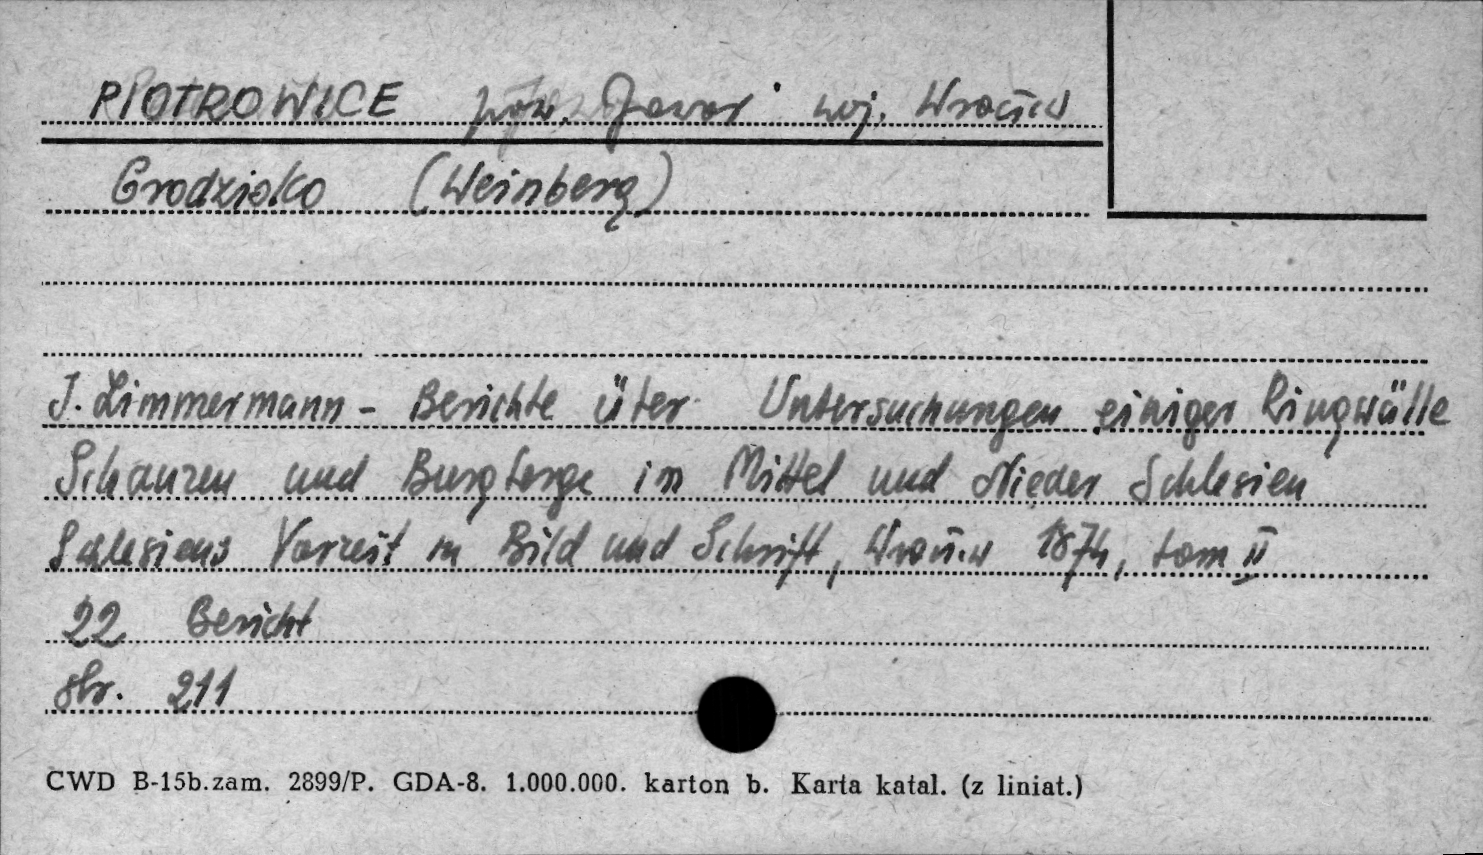 PIOTROWICE pow. Jawor woj. Wrocław
Grodzisko (Weinberg)
J. Zimmermann - Berichte über Untersuchungen einiger Ringwälle
Schanzen und Burgberge in Mittel und Nieder Schlesien
Schlesiens Vorzeit in Bild und Schrift, Wrocław 1874, tom II
22 Bericht
str. 211
CWD B-15b.zam. 2899/P. GDA-8. 1.000.000. karton b. Karta katal. (z liniat.)